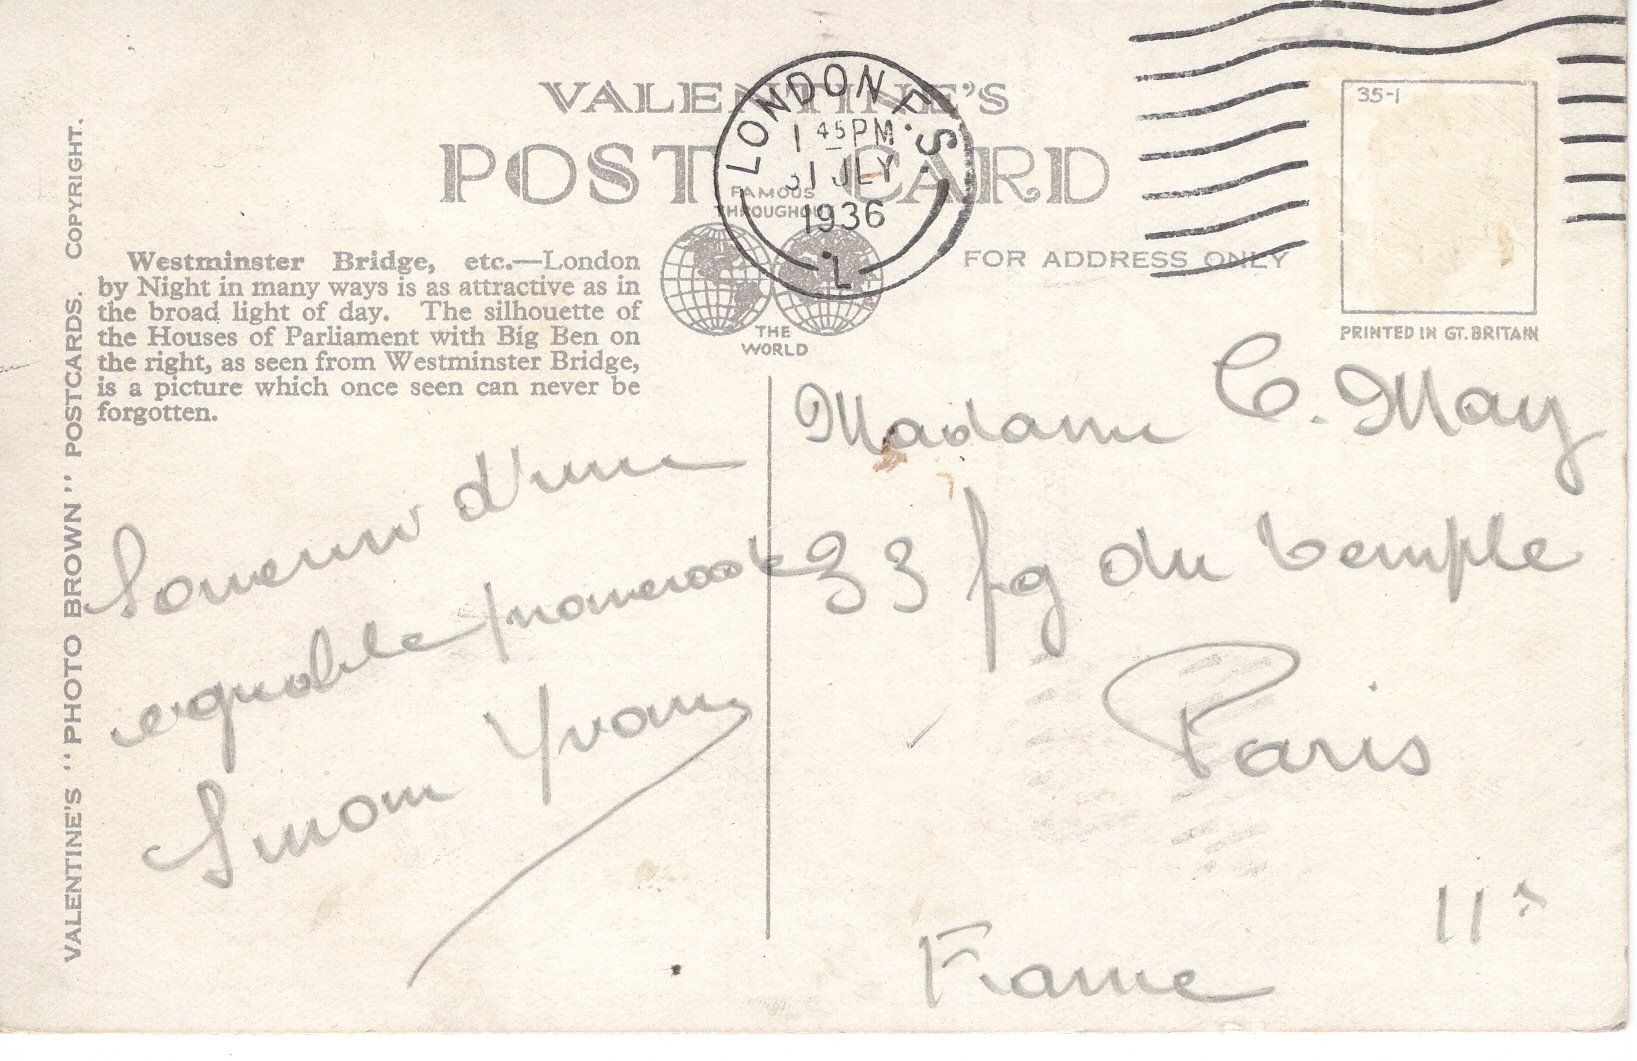 VALENTINE'S
POST CARD
FAMOUS
THROUGHOUT
THE
WORLD
FOR ADDRESS ONLY
LONDON F.S.
1 45 PM
31 JLY
1936
L
35-1
PRINTED IN GT. BRITAIN
VALENTINE'S "PHOTO BROWN" POSTCARDS. COPYRIGHT.
Westminster Bridge, etc.—London
by Night in many ways is as attractive as in
the broad light of day. The silhouette of
the Houses of Parliament with Big Ben on
the right, as seen from Westminster Bridge,
is a picture which once seen can never be
forgotten.
Souvenir d'une
agréable promenade
Simon Yvonne
Madame C. May
33 fg du temple
Paris
11e
France